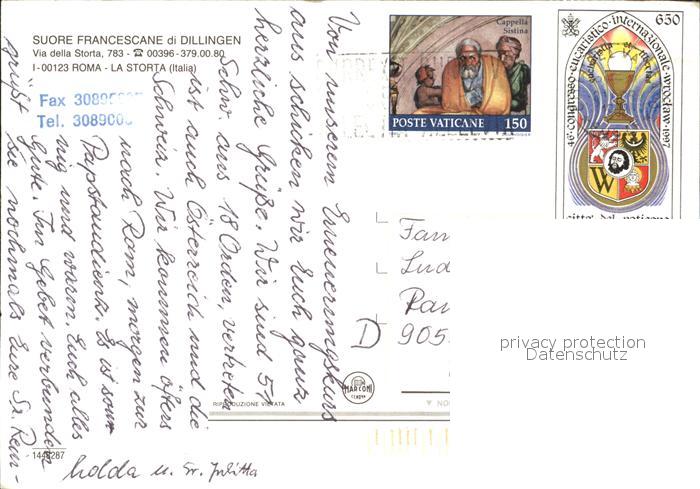 SUORE FRANCESCANE di DILLINGEN
Via della Storta, 783 - ☎ 00396-379.00.80
I - 00123 ROMA - LA STORTA (Italia)
Fax 30895
Tel. 308900
Cappella
Sistina
POSTE VATICANE 150
650
46° congresso eucaristico internazionale wroclaw 1997
città del vaticano
Von unserem Erneuerungskurs
aus schicken wir Euch ganz
herzliche Grüße. Wir sind 51
Schw. aus 18 Orden, vertreten
ist auch Österreich und die
Schweiz. Wir kommen öfters
nach Rom, morgen zur
Papstaudienz. Es ist sonnig
und warm. Euch alles
Gute. Im Gebet verbunden
grüßt Sie nochmals Eure Sr. Rein-
holda u. Sr. Julitta
Fam
Lud
D 905
MARCONI
GENOVA
RIPRODUZIONE VIETATA
1448287
privacy protection
Datenschutz